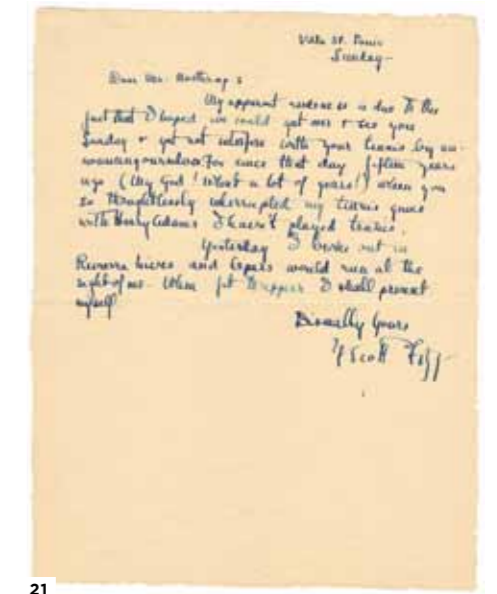 Villa St. Louis
Sunday –
Dear Mr.
My apparent rudeness is due to the
fact that I hoped we could get over & see you
Sunday & yet not interfere with your tennis by an-
nouncing ourselves. For since that day fifteen years
ago (My God! What a lot of years!) when you
so thoughtlessly interrupted my tennis game
with Henry Adams I haven't played tennis.
Yesterday I broke out in
Riviera hives and lepers would run at the
sight of me. When fit I shall present
myself
Yours
F Scott Fitz
21